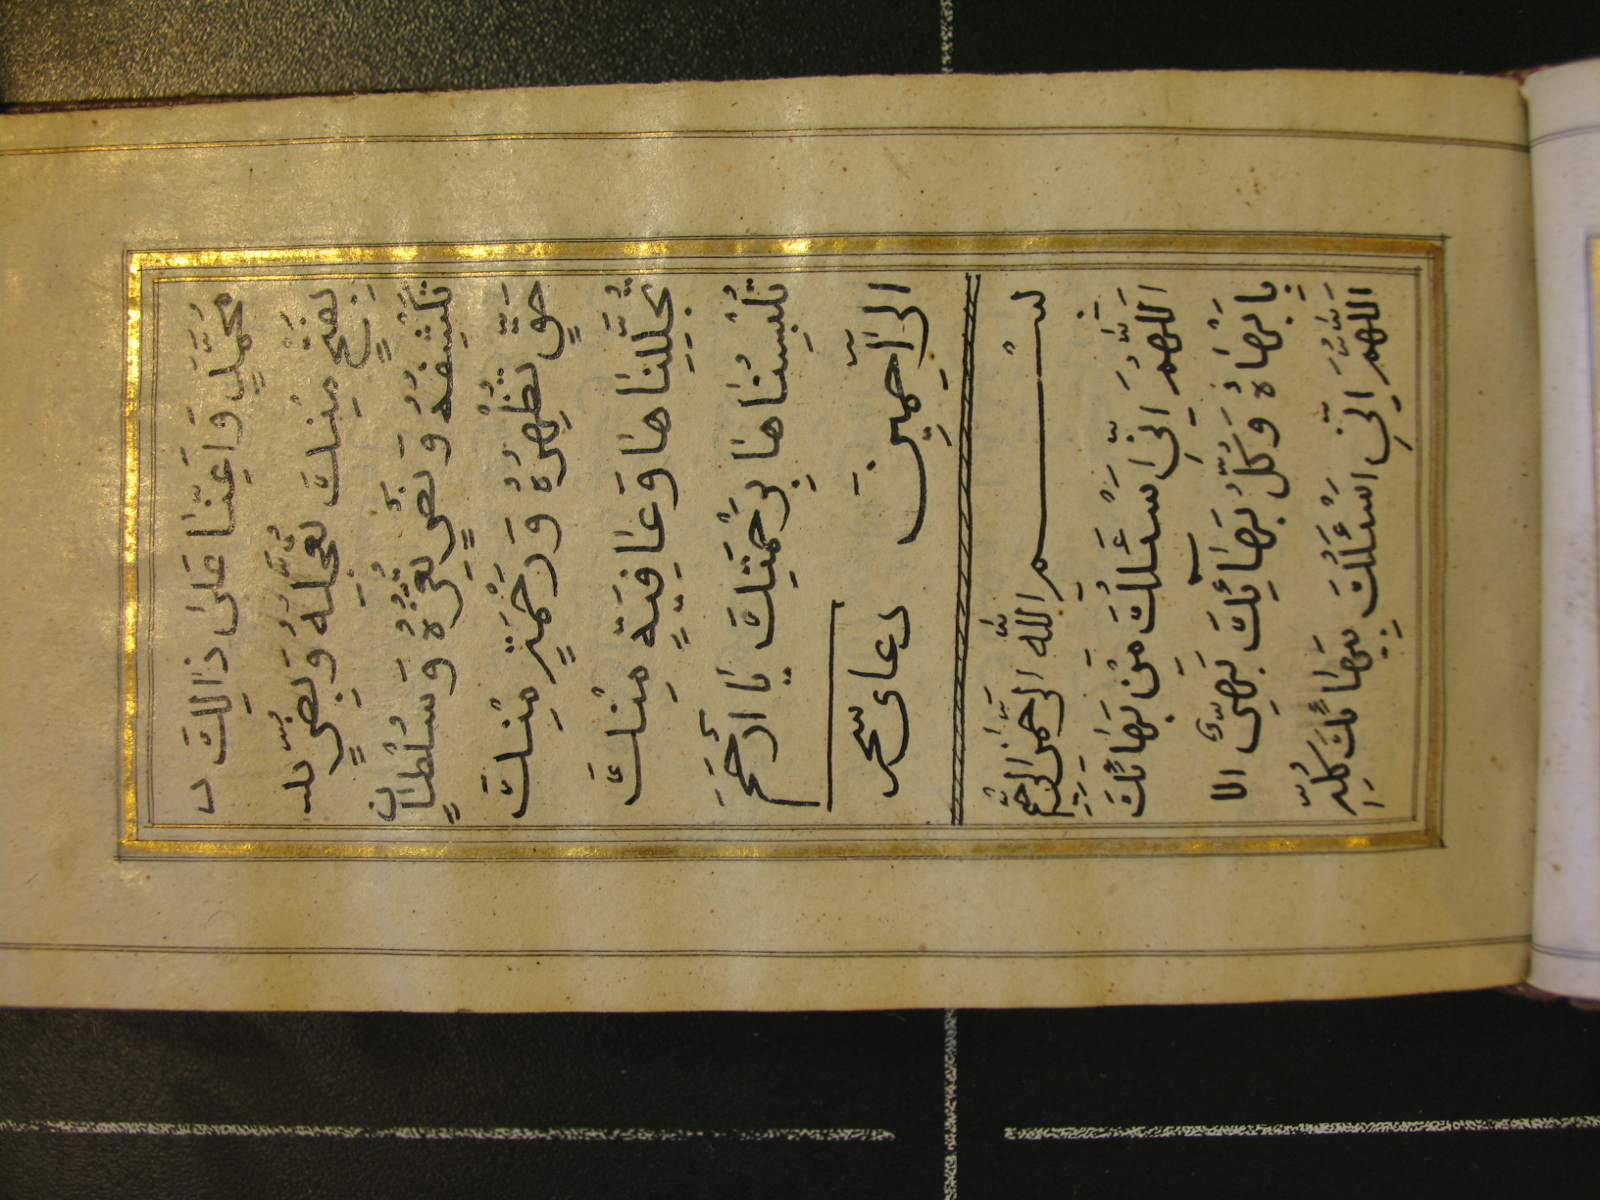 مُحَمَّدٍ وَاَعِنَّا عَلىٰ ذٰالِكَ
بِفَتْحٍ مِنْكَ تُعَجِّلُهُ وَبِضُرٍّ
تَكْشِفُهُ وَنَصْرٍ تُعِزُّهُ وَسُلْطٰانِ
حَقٍّ تُظْهِرُهُ وَرَحْمَةٍ مِنْكَ
تُجَلِّلُنٰاهٰا وَعٰافِيَةٍ مِنْكَ
تُلْبِسُنٰاهٰا بِرَحْمَتِكَ يٰا اَرْحَمَ
الرّٰاحِمِينَ دعاى سحر
بسم اللّه الرَّحمن الرَّحيم
اَللّٰهُمَّ اِنّي اَسْئَلُكَ مِنْ بَهٰائِكَ
بِاَبْهٰاهُ وَكُلُّ بَهٰائِكَ بَهِىٌّ الا
اَللّٰهُمَّ اِنّي اَسْئَلُكَ بِبَهٰائِكَ كُلِّهِ